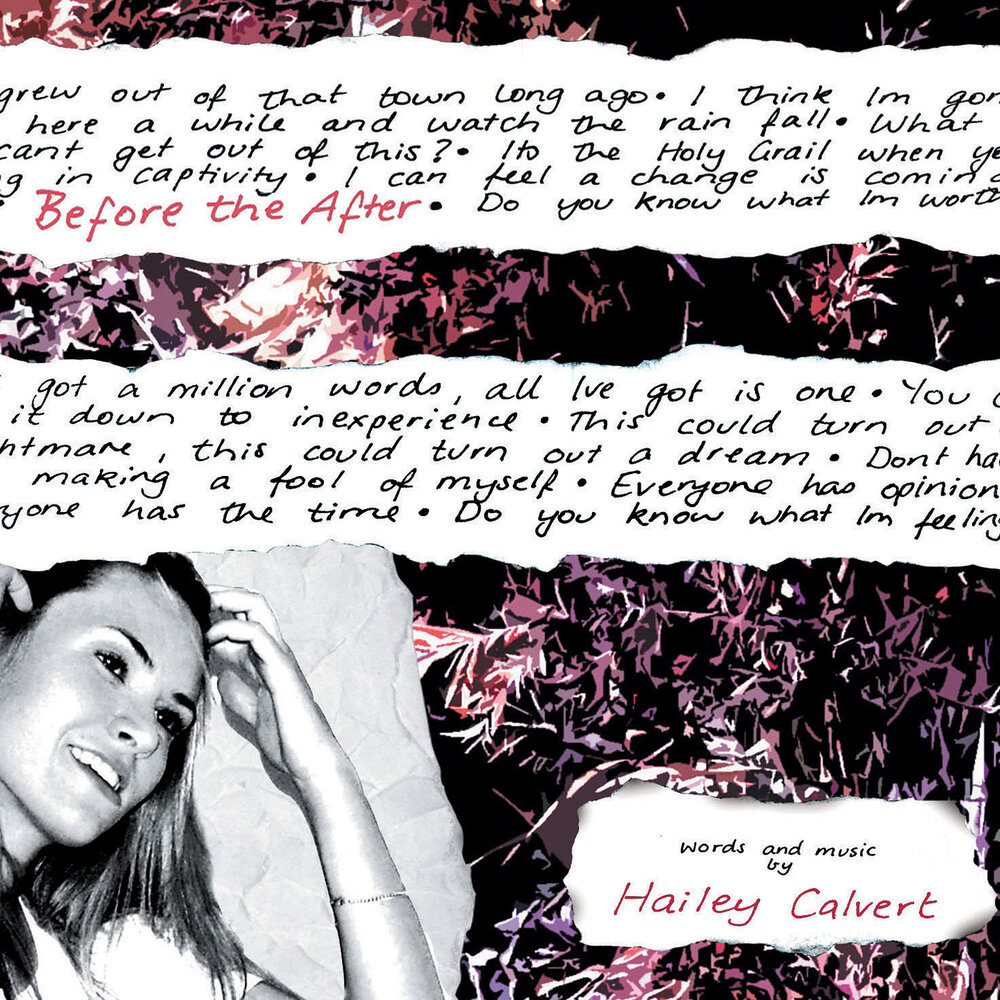 grew out of that town long ago • I think Im gon
here a while and watch the rain fall • What
cant get out of this? • Its the Holy Grail when ye
g in captivity • I can feel a change is coming
• Before the After • Do you know what Im worth
got a million words, all Ive got is one • You c
it down to inexperience • This could turn out
htmare, this could turn out a dream • Dont hav
making a fool of myself • Everyone has opinion
yone has the time • Do you know what Im feeling
words and music
by
Hailey Calvert